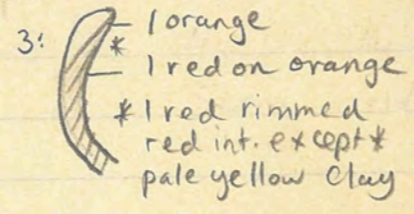 3:
1 orange
*
1 red on orange
*1 red rimmed
red int. except *
pale yellow clay